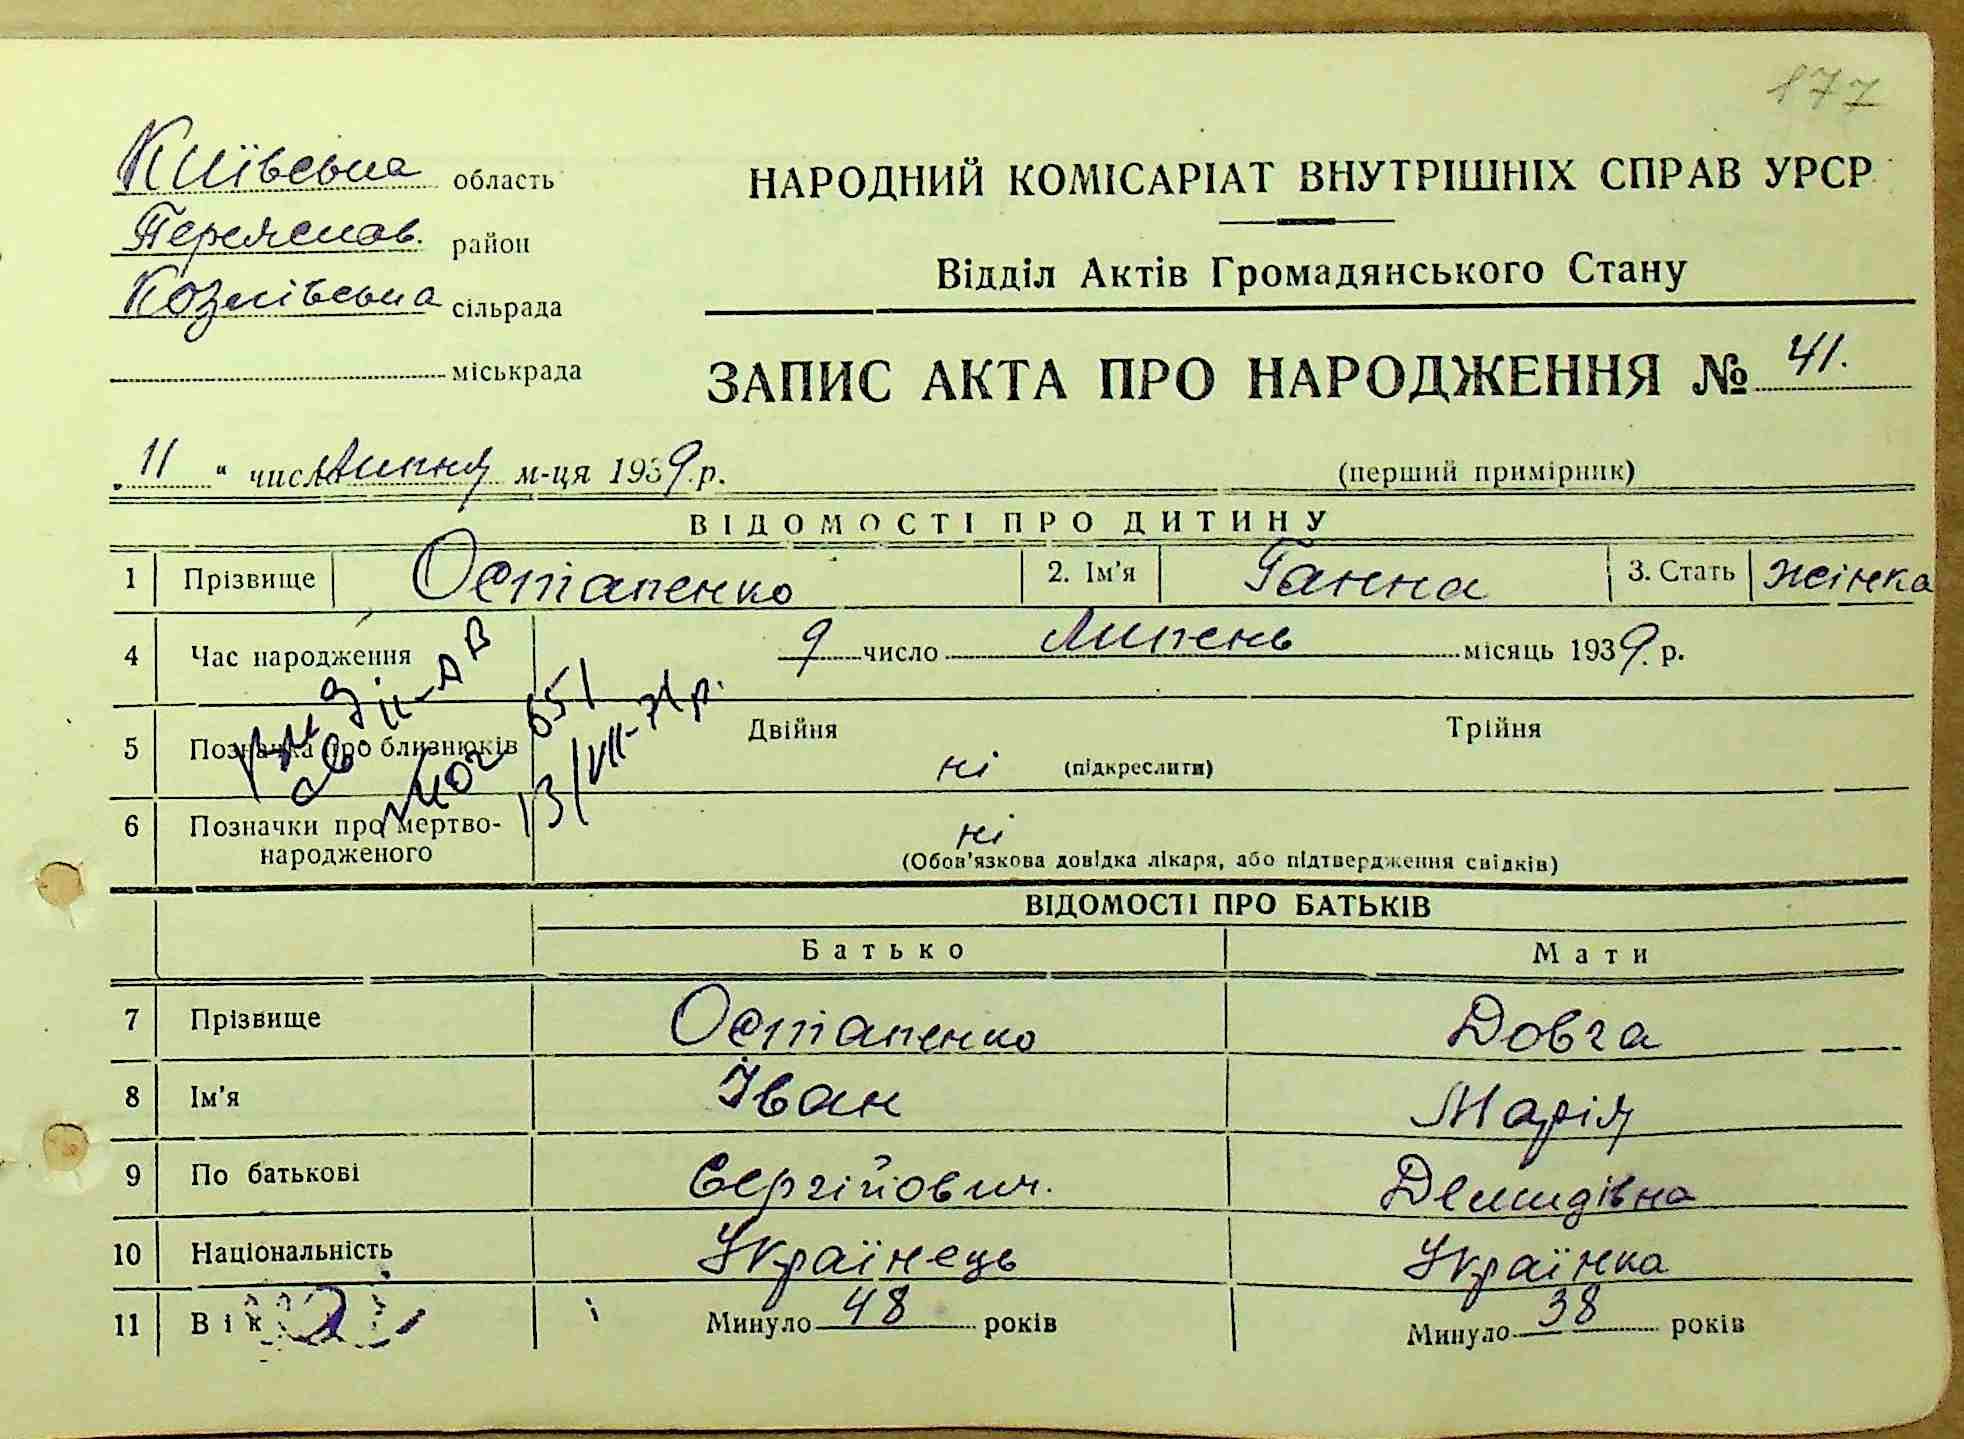 177
Київська область
Переяслав. район
Козлівська сільрада
міськрада
НАРОДНИЙ КОМІСАРІАТ ВНУТРІШНІХ СПРАВ УРСР
Відділ Актів Громадянського Стану
ЗАПИС АКТА ПРО НАРОДЖЕННЯ № 41.
„11“ числа липня м-ця 1939 р.
(перший примірник)
ВІДОМОСТІ ПРО ДИТИНУ
1 Прізвище Остапенко 2. Ім'я Ганна 3. Стать жінка
4 Час народження 9 число липень місяць 1939 р.
5 Позначка про близнюків Двійня Трійня
ні (підкреслити)
651
13/VII-71р.
6 Позначки про мертво-
народженого ні
(Обов'язкова довідка лікаря, або підтвердження свідків)
ВІДОМОСТІ ПРО БАТЬКІВ
Батько Мати
7 Прізвище Остапенко Довга
8 Ім'я Іван Марія
9 По батькові Сергійович. Демидівна
10 Національність Українець Українка
11 Вік Минуло 48 років Минуло 38 років